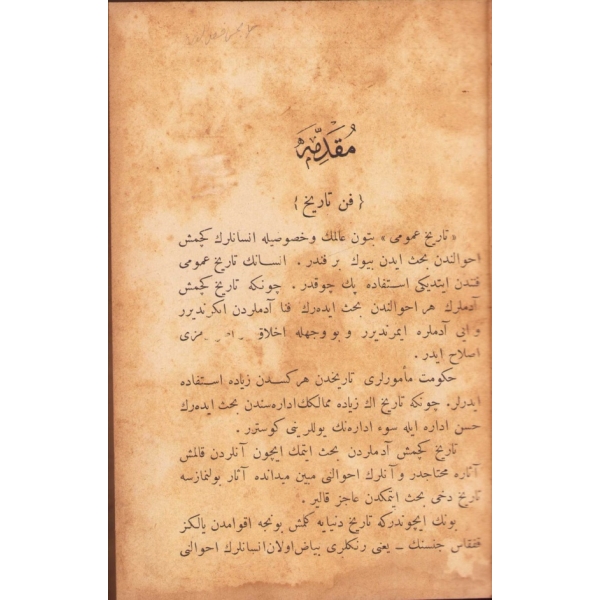 مُقَدِّمَه
{ فن تاريخ }
« تاريخ عمومى » بتون عالمك و خصوصيله انسانلرك كچمش
احوالندن بحث ايدن بيوك بر فندر . انسانك تاريخ عمومى
فندن ايتديكى استفاده پك چوقدر . چونكه تاريخ كچمش
آدملرك هر احوالندن بحث ايده‌رك فنا آدملردن اكرنديرر
و ايى آدملره ايمرنديرر و بو وجهله اخلاق
اصلاح ايدر .
حكومت مأمورلرى تاريخدن هركسدن زياده استفاده
ايدرلر. چونكه تاريخ اك زياده ممالكك اداره‌سندن بحث ايده‌رك
حسن اداره ايله سوء اداره‌نك يوللرينى كوسترر .
تاريخ كچمش آدملردن بحث ايتمك ايچون آنلردن قالمش
آثاره محتاجدر و آنلرك احوالنى مبين ميدانده آثار بولنمازسه
تاريخ دخى بحث ايتمكدن عاجز قالير .
بونك ايچوندركه تاريخ دنيايه كلمش بونجه اقوامدن يالكز
قفقاس جنسنك ــ يعنى رنكلرى بياض اولان انسانلرك احوالنى